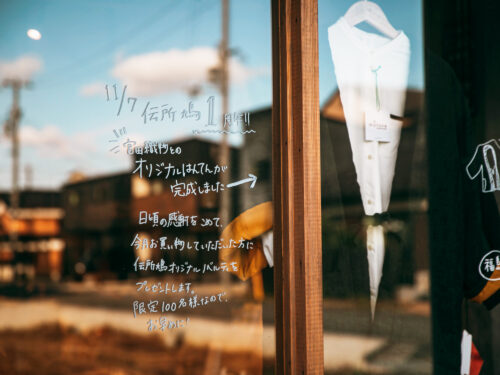 11/7 伝所鳩 1周年!!
宮田織物との
オリジナルはんてんが
完成しました→
日頃の感謝をこめて、
今月お買い物していただいた方に
伝所鳩オリジナル
プレゼントします。
限定100名様なので、
お早めに!
福島